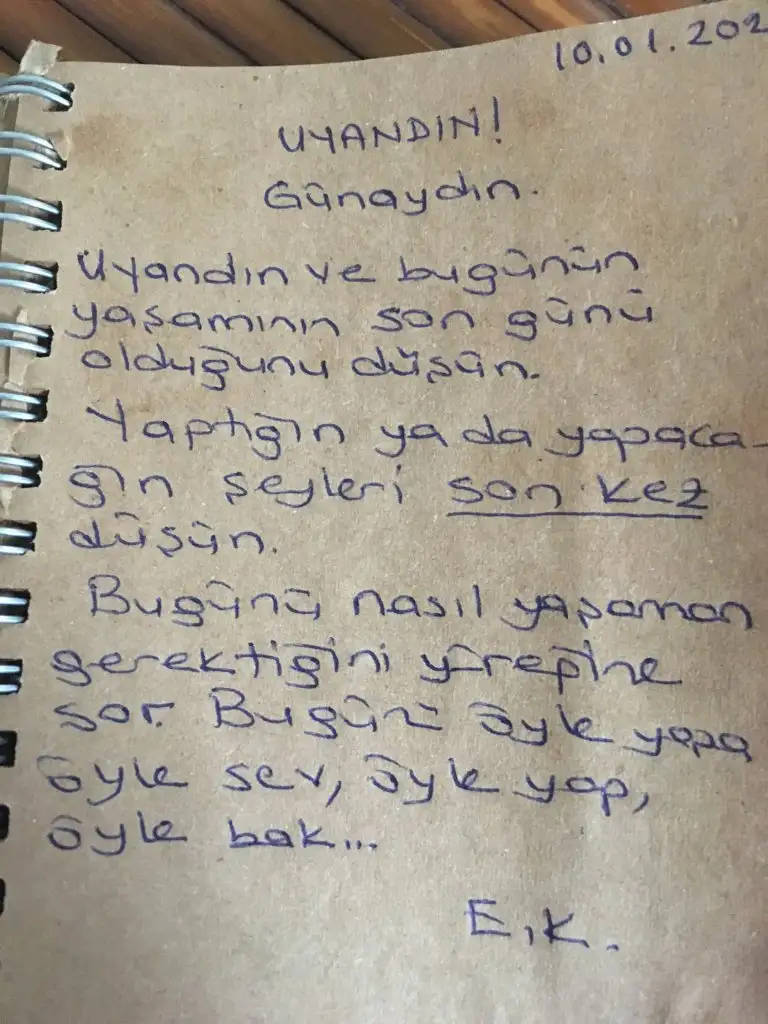 10.01.202
UYANDIN!
Günaydın.
Uyandın ve bugünün
yaşamının son günü
olduğunu düşün.
Yaptığın ya da yapaca-
ğın şeyleri son kez
düşün.
Bugünü nasıl yaşaman
gerektiğini yüreğine
sor. Bugünü öyle yaşa
öyle sev, öyle yap,
öyle bak...
E.K.